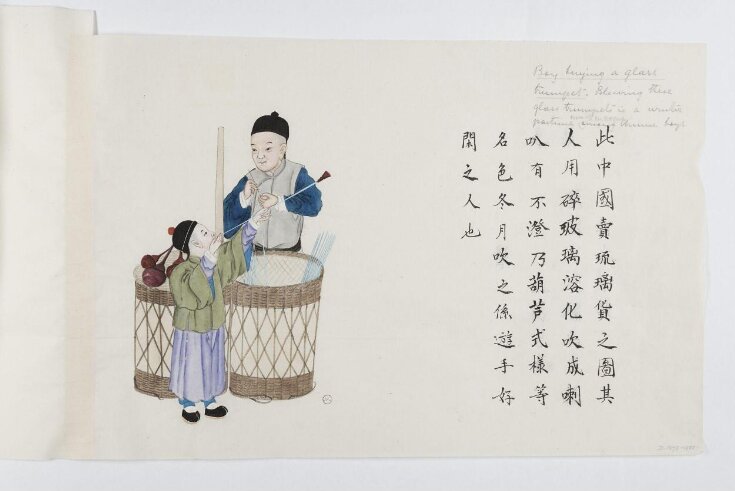 Boy buying a glass
trumpet. Blowing these
glass trumpets is a winter
pastime among Chinese boys
此中國賣琉璃貨之圖其
人用碎玻璃溶化吹成喇
叭有不澄乃葫芦式樣等
名色冬月吹之係遊手好
閑之人也